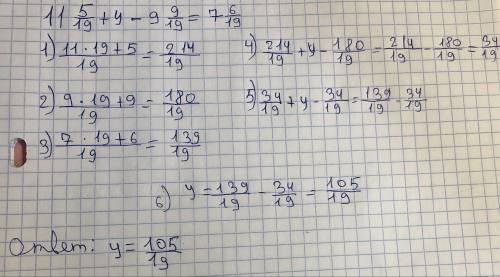 11 5/19 + y - 9 9/19 = 7 6/19
1) (11 · 19 + 5)/19 = 214/19
4) 214/19 + y - 180/19 = 214/19 - 180/19 = 34/19
2) (9 · 19 + 9)/19 = 180/19
5) 34/19 + y - 34/19 = 139/19 - 34/19
3) (7 · 19 + 6)/19 = 139/19
6) y = 139/19 - 34/19 = 105/19
Ответ: y = 105/19